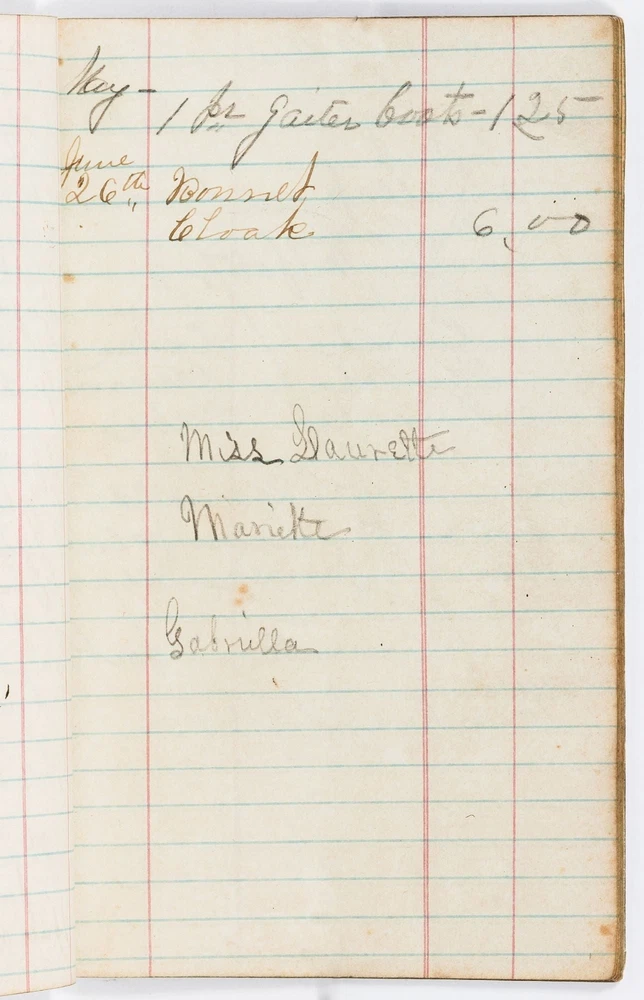 May - 1 pr Gaiter boots - 1 25
June
26th Bonnet
Cloak 6,00
Miss Laurette
Mariette
Gabriella